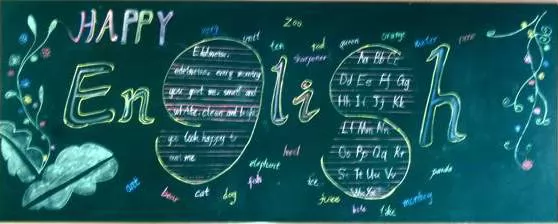 HAPPY
English
Zoo
very
ten
red
queen
orange
water
sharpener
Edelweiss,
edelweiss, every morning
you greet me, small and
white, clean and bright
you look happy to
meet me
Aa Bb Cc
Dd Ee Ff Gg
Hh Ii Jj Kk
Ll Mm Nn
Oo Pp Qq Rr
Ss Tt Uu Vv
Ww Xx
elephant
fish
ant
bear
cat
dog
ice
juice
kite
like
monkey
panda